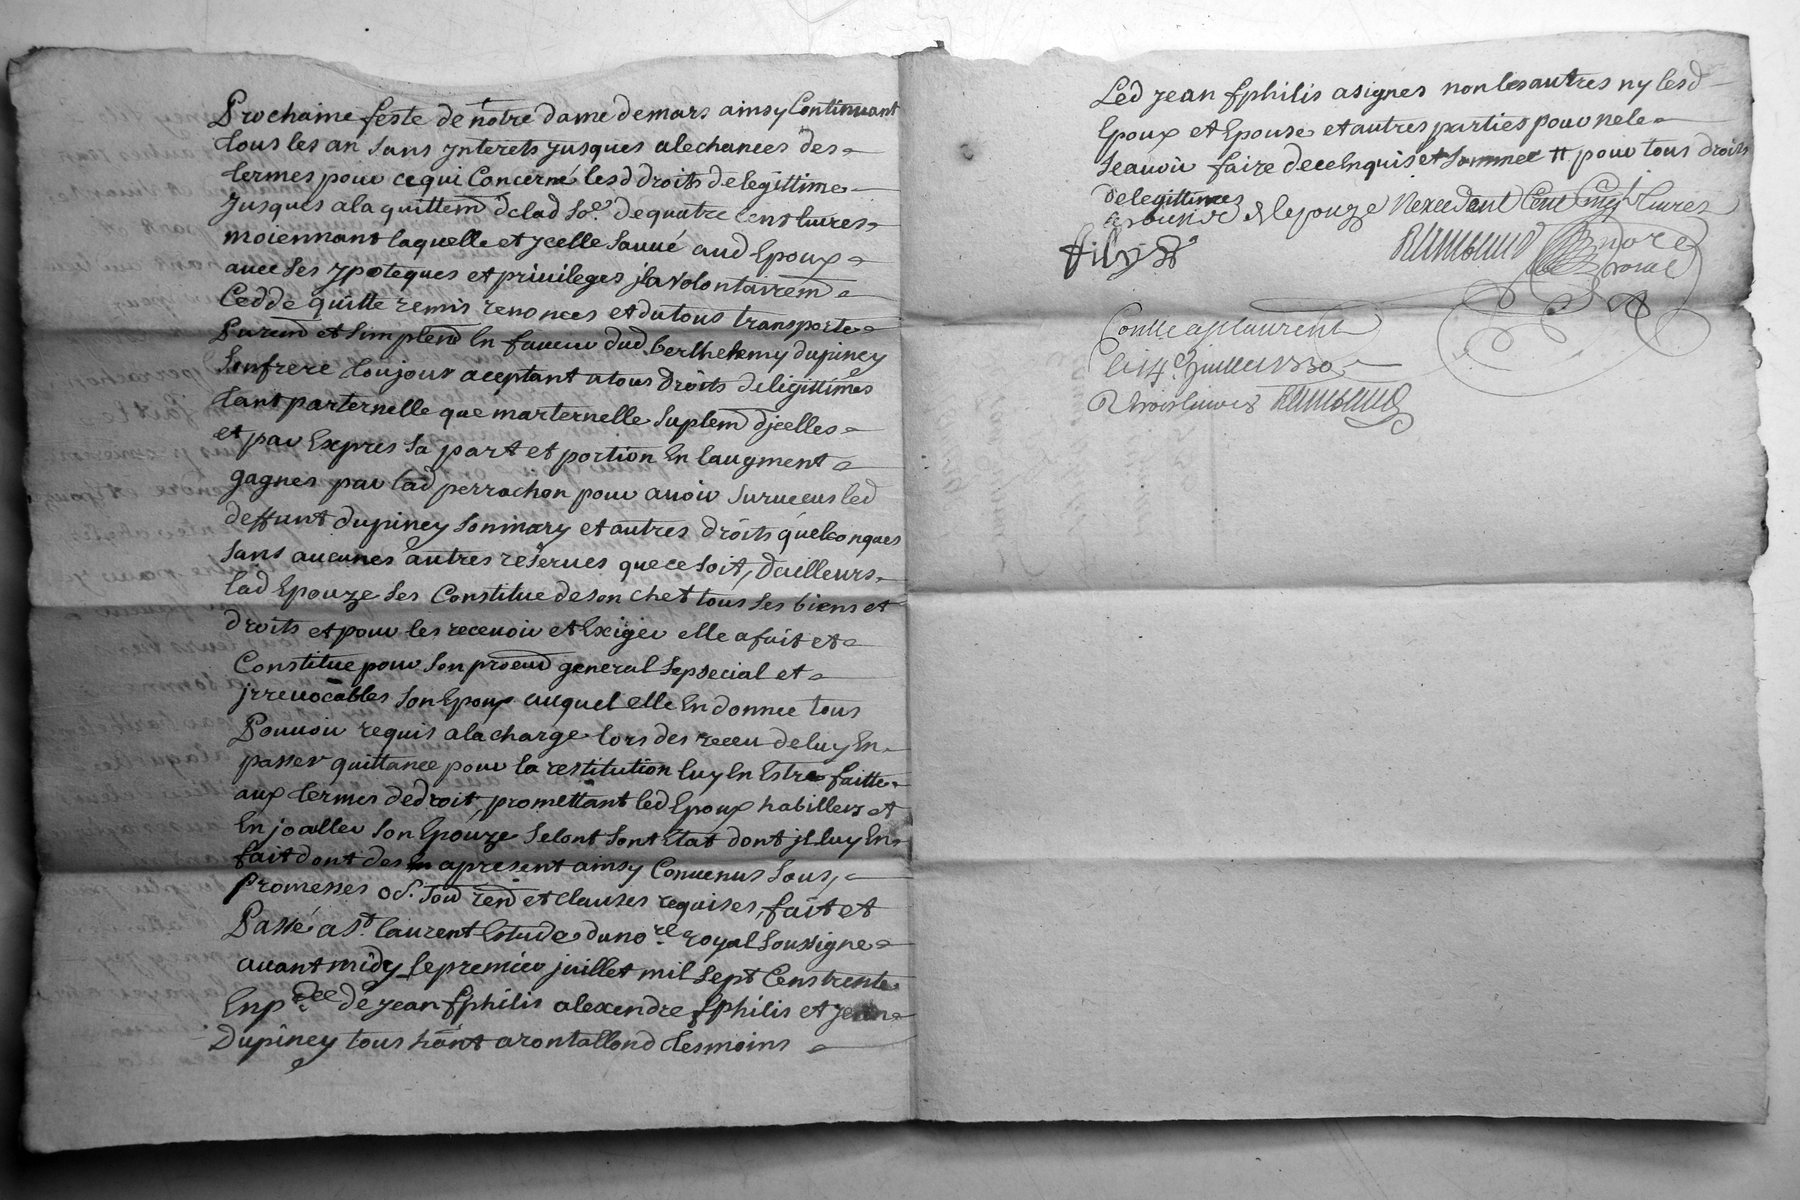 Prochaine feste de notre dame de mars ainsy Continuant
tous les an sans ynterets jusques alechances des
termes pour ce qui Concerne lesd droits de legittime
Jusques a la quittem delad So.e de quatre cent livres
moiennant laquelle et ycelle sauué aud Epoux
auec ses ypoteques et priuileges jla volontairem
Cedde quitte remis renonces et du tous transporte
Purem et simplem En faueur dud berthelemy dupiney
Son frere toujour aceptant atous droits deligittimes
tant parternelle que marternelle suplem djcelles
et par Expres sa part et portion En laugment
gagnes par lad perrachon pour auoir suruecus led
deffunt dupiney son mary et autres droits quelconques
sans aucunes autres reserues que ce soit, dailleurs
lad Epouze ses Constitue de son chef tous ses biens et
droits et pour les receuoir et Exiger elle a fait et
Constitue pour son procur general sepsecial et
jrreuocables son Epoux auquel elle En donnee tous
Pouuoir requis ala charge lors des receu de luy En
passer quittance pour la restitution luy En Estre faitte
aux termes de droit, promettant led Epoux habillers et
En joaller son Epouze selont sont Etat dont jl luy En
fait dont des apresent ainsy Conuenus sous,
Promesses ob. sou ren et clauses requises, fait et
Passé a St. laurent Estude du no.re royal soussigne
auant midy le premier juillet mil sept Cens trente
En p.ce de jean fphilis alexendre fphilis et jean
Dupiney tous hant a rontallond tesmoins
Led jean fphilis a signes non les autres ny lesd
Epoux et Epouse et autres parties pour ne le
seauoir faire de ce Enquis et sommee # pour tous droits
de legittimes
de lepouze Nexcedant Cent Cinq. liures
filys
nore
royal
Conlle a st laurent
le 14e juillet 1730
R trois liures